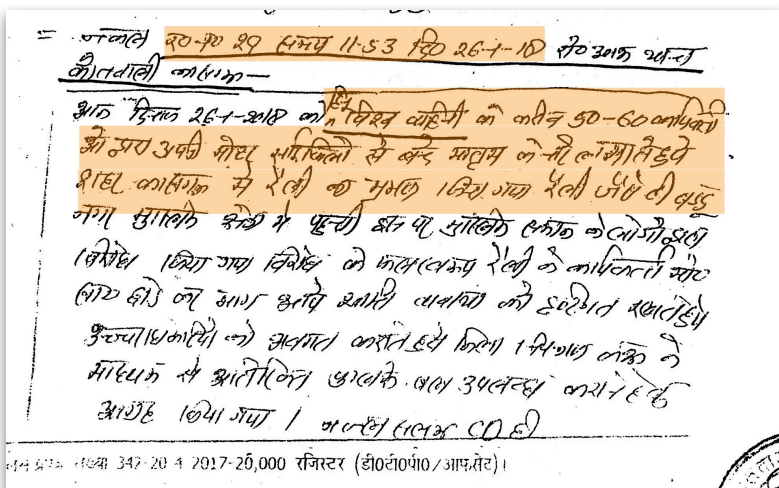 = नकल रप0न0 29 समय 11-53 दि0 26-1-18 थाना
कोतवाली कासगंज
आज दिनांक 26-1-2018 को हिन्दू विश्व वाहिनी के करीब 50-60 कार्यकर्ता
ओ द्वारा अपनी मोटर साईकिलो से वन्दे मातरम के नारे लगाते हुये
शहर कासगंज मे रैली का भ्रमण किया गया रैली जैसे ही बड्डू
नगर मुस्लिम क्षेत्र मे पहुंची मुस्लिम समाज के लोगो द्वारा
विरोध किया गया विरोध के फलस्वरूप रैली के कार्यकर्ता मोटर
छोड कर भाग गये शान्ति व्यवस्था को दृष्टिगत रखते हुये
उच्चाधिकारियो को अवगत कराते हुये जिला नियंत्रण कक्ष के
माध्यम से अतिरिक्त पुलिस बल उपलब्ध कराने हेतु
आग्रह किया गया । CO
संख्या 347-20 4 2017-20,000 रजिस्टर (डी0टी0पी0/आफसेट)।